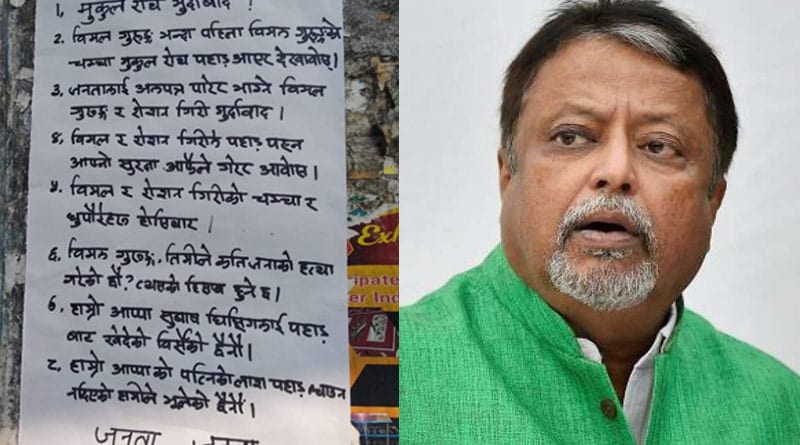 1. मुकुल रोय मुर्दाबाद !
2. विमल गुरुङ भन्दा पहिला विमल गुरुङको
चम्चा मुकुल रोय पहाड आएर देखावोस्।
3. जनतालाई अलपत्र पारेर भाग्ने विमल
गुरुङ र रोशन गिरी मुर्दाबाद।
४. विमल र रोशन गिरीले पहाड पस्न
आफ्नो सुरक्षा आफैले गरेर आवोस्।
५. विमल र रोशन गिरीको चम्चा र
होसियार।
६. विमल गुरुङ, तिमीले कतिजनाको हत्या
गरेको छौ? त्यसको हिसाब हुने छ।
6. हाम्रो आप्पा सुबास घिसिङलाई पहाड
बाट खेदेको बिर्सेको छैनौं।
८. हाम्रो आप्पाको पत्निको लाश पहाड
नदिएको हामीले भुलेको छैनौं।
जनता
Exh
ticipate
er In